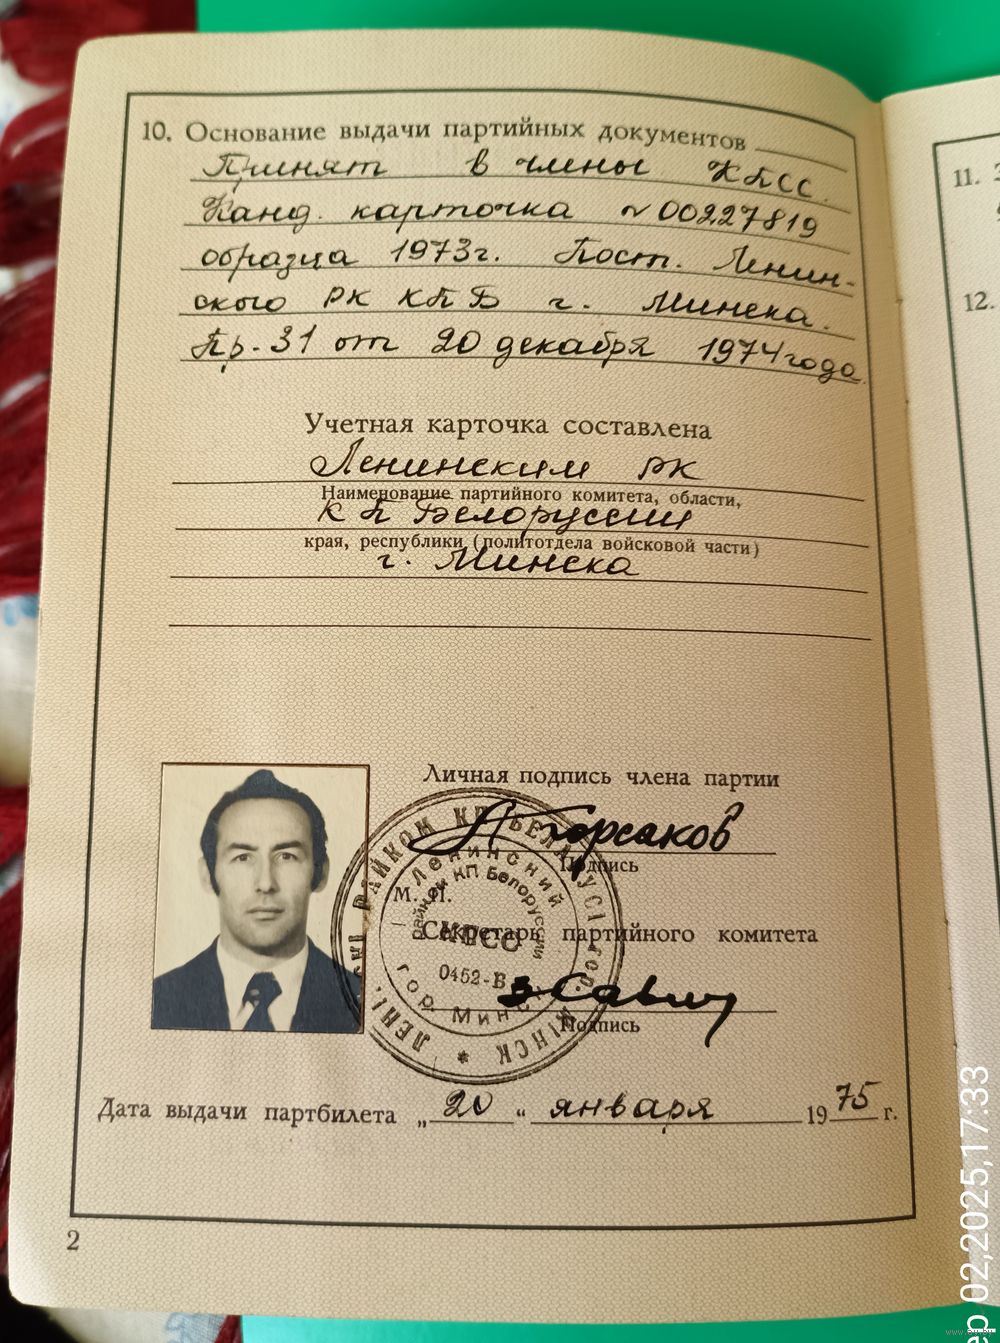 10. Основание выдачи партийных документов
Принят в члены КПСС.
Канд. карточка № 00227819
образца 1973г. Пост. Ленин-
ского РК КПБ г. Минска.
Пр. 31 от 20 декабря 1974 года
Учетная карточка составлена
Ленинским РК
Наименование партийного комитета, области,
КП Белоруссии
края, республики (политотдела войсковой части)
г. Минска
Личная подпись члена партии
Горсаков
Подпись
М. П.
Секретарь партийного комитета
Подпись
РАЙКОМ КП БЕЛАРУСІ гор. МІНСК * ЛЕНІ
Ленинский
райком КП Белоруссии
КПСС
0452-В
гор. Минск
Дата выдачи партбилета „20“ января 1975 г.
2
11.
12.
ep 02,2025,17:33